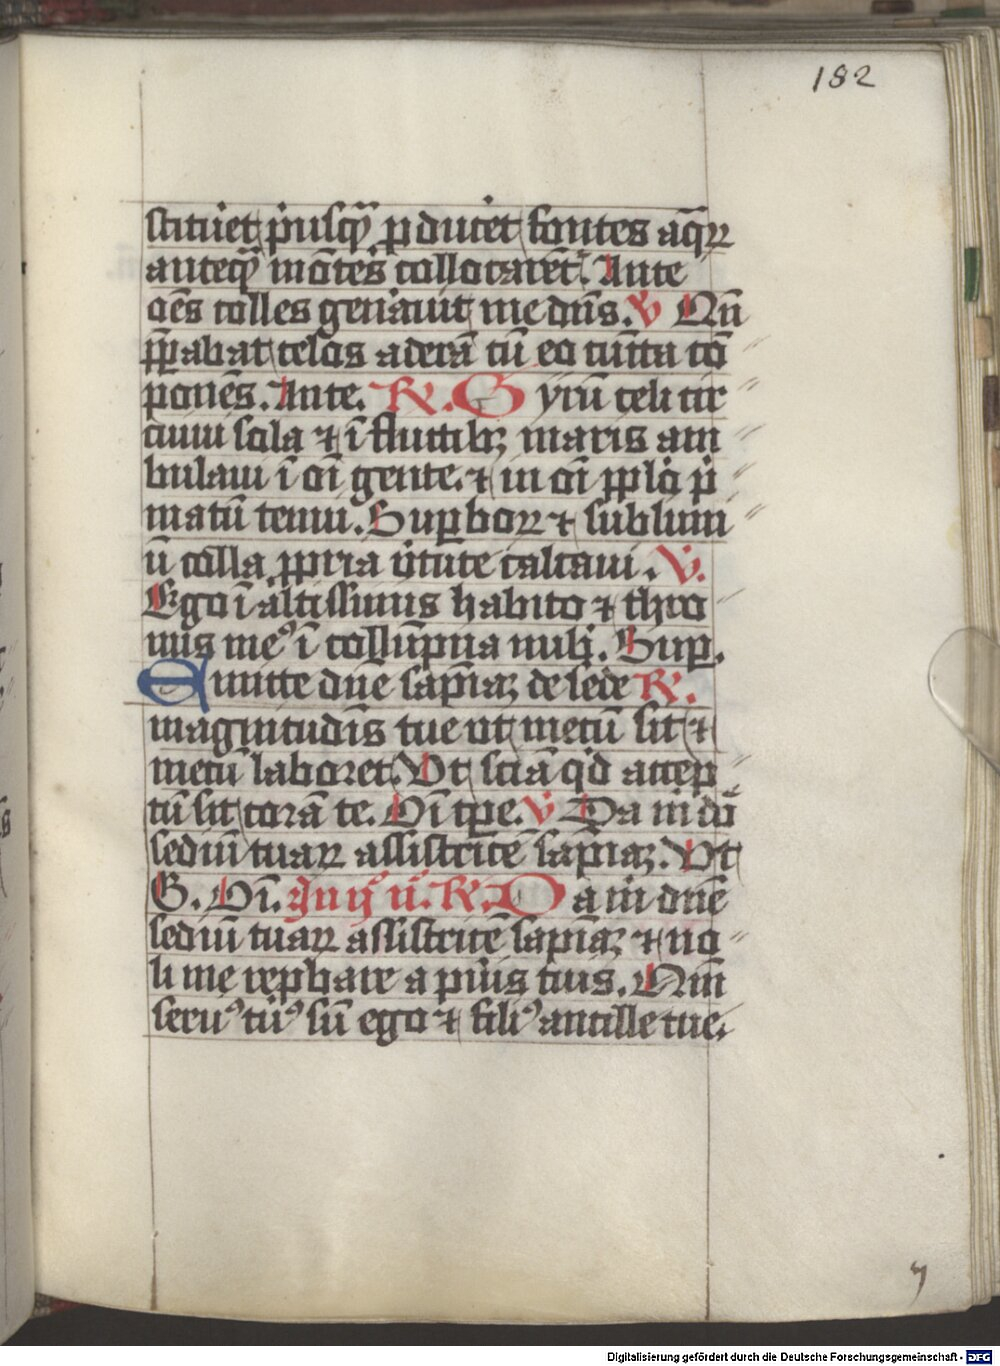 182
stitueret priusqȝ ꝓduceret fontes aq̄ꝝ
anteqȝ mōtes collocarēt. Ante
oēs colles gen̄auit me dn̄s. V Qn̄
p̄ꝑabat celos aderā cū eo cūcta cō
ponēs. Ante. R. Gyrū celi cir
cuiui sola ⁊ ī fluctibꝫ maris am
bulaui ī oī gente ⁊ in oī ppl̄o p̄i
matū tenui. Suꝑboꝝ ⁊ sublimi
ū colla ꝓpria v̄tute calcaui. V.
Ego ī altissimis habito ⁊ thro
nus meꝰ ī collūpna nub̄. Suꝑ.
Emitte dn̄e sapīaꝫ de sede R.
magnitudīs tue vt mecū sit ⁊
mecū laboret. Vt sciā qd̄ accep
tū sit corā te. Oī tꝑe. V Da m̄ dn̄
sediū tuaꝝ assistricē sapīaꝫ. Vt
G. Oī. R. Da m̄ dn̄e
sediū tuaꝝ assistricē sapīaꝫ ⁊ no
li me rep̄bare a pūis tuis. Qm̄
seruꝰ tuꝰ sū ego ⁊ filiꝰ ancille tue.
Digitalisierung gefördert durch die Deutsche Forschungsgemeinschaft - DFG